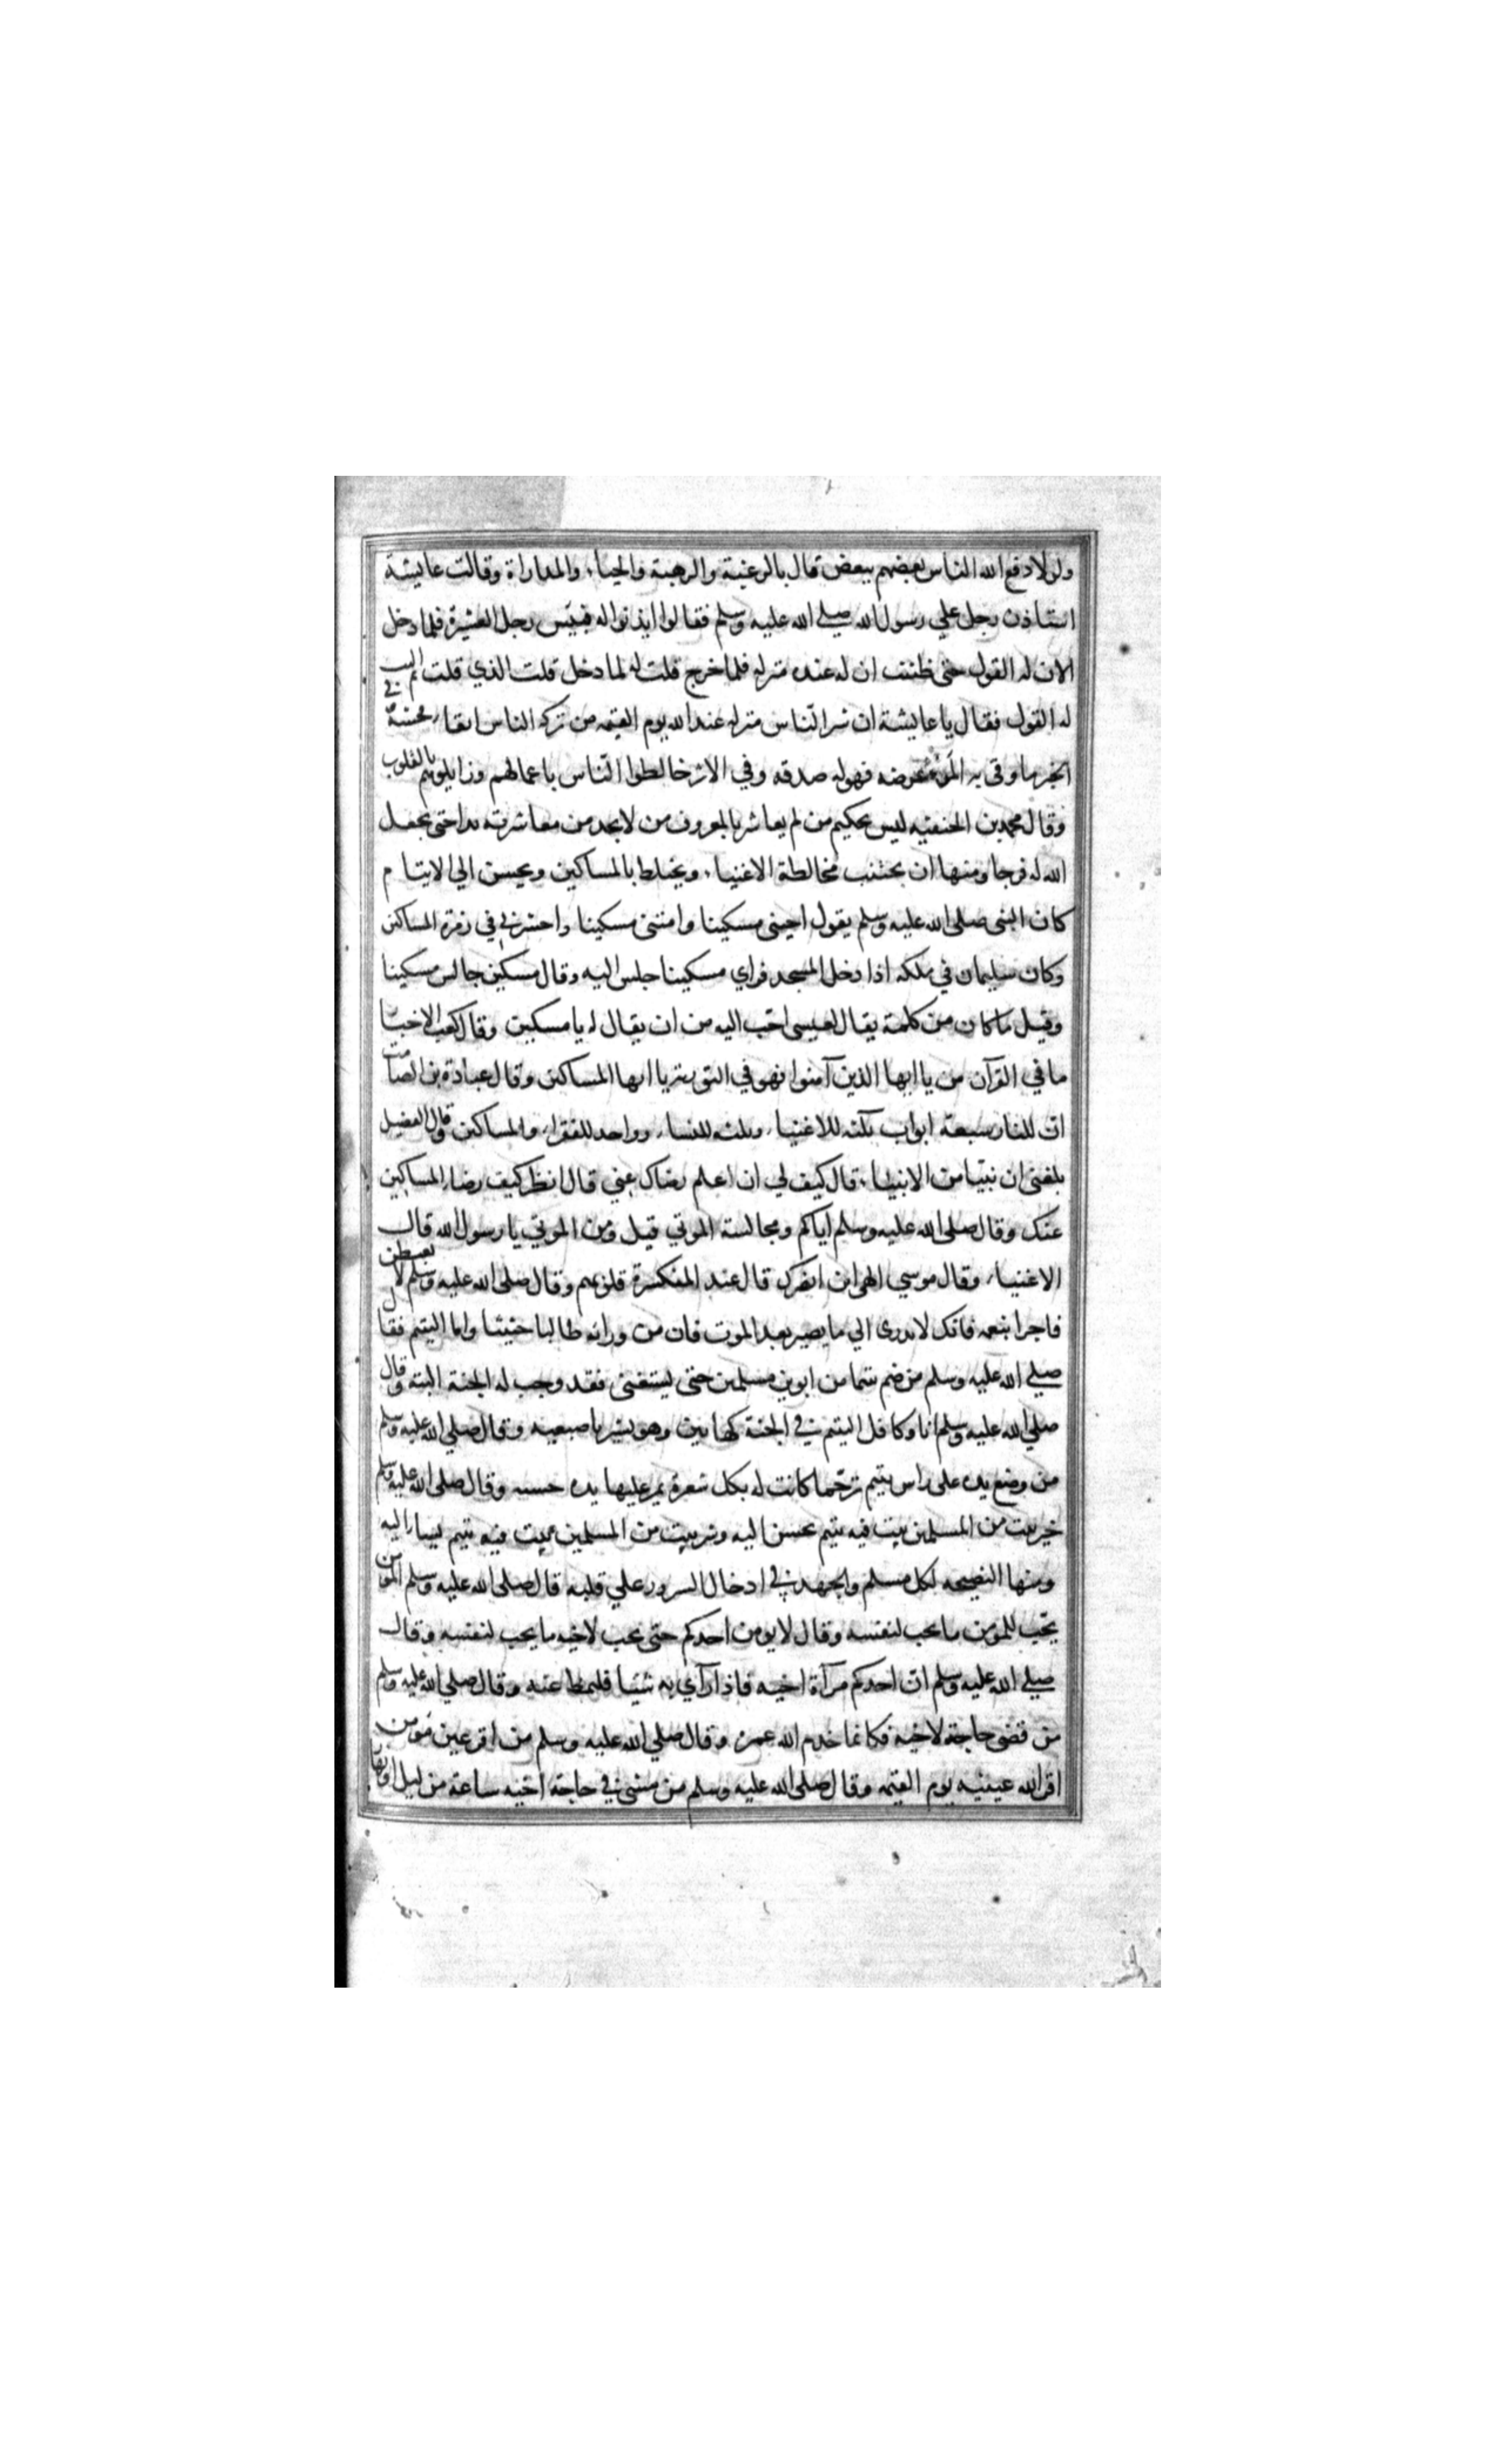 ولولا دفع الله الناس بعضهم ببعض قال بالرغبة والرهبة والحياء والمداراة وقالت عايشة
استاذن رجل علي رسول الله صلي الله عليه وسلم فقالوا ايذنوا له فبيس رجل العشيرة فلما دخل
الان له القول حتى ظننت ان له عنده منزله فلما خرج قلت له لما دخل قلت الذي قلت ثم النت في
له القول فقال يا عايشة ان شر الناس منزله عند الله يوم القيمه من تركه الناس اتقاء فحشه
الخبر ما وقى به المرء عرضه فهو له صدقه وفي الاثر خالطوا الناس باعمالهم وزايلوهم بالقلوب
وقال محمد بن الحنفيه ليس بحكيم من لم يعاشر بالمعروف من لا يجد من معاشرته بدا حتى يجعل
الله له فرجا ومنها ان يجتنب مخالطة الاغنياء ويختلط بالمساكين ويحسن الي الايتام
كان النبى صلى الله عليه وسلم يقول احينى مسكينا وامتنى مسكينا واحشرني في زمرة المساكين
وكان سليمان في ملكه اذا دخل المسجد فراي مسكينا جلس اليه وقال مسكين جالس مسكينا
وقيل ما كان من كلمة يقال لعيسى احب اليه من ان يقال له يا مسكين وقال كعب الاخبار
ما في القرآن من يا ايها الذين آمنوا فهو في التوريه يا ايها المساكين وقال عبادة بن الصامت
ان للنار سبعة ابواب ثلثه للاغنياء وثلثه للنساء وواحد للفقراء والمساكين وقال الفضيل
بلغنى ان نبيا من الانبياء قال كيف لي ان اعلم رضاك عني قال انظر كيف رضاء المساكين
عنك وقال صلى الله عليه وسلم اياكم ومجالسة الموتي قيل ومن الموتي يا رسول الله قال
الاغنياء وقال موسي الهى اين ابغيك قال عند المنكسرة قلوبهم وقال صلى الله عليه وسلم لا تغبطن
فاجرا بنعمه فانك لا تدرى الي ما يصير بعد الموت فان من ورائه طالبا حثيثا واما اليتيم فقال
صلي الله عليه وسلم من ضم يتما من ابوين مسلمين حتى يستغنى فقد وجب له الجنة البته وقال
صلي الله عليه وسلم انا وكافل اليتيم في الجنة كهاتين وهو يشير باصبعيه وقال صلي الله عليه وسلم
من وضع يده على راس يتيم ترحما كانت له بكل شعرة يمر عليها يده حسنه وقال صلى الله عليه وسلم
خير بيت من المسلمين بيت فيه يتيم يحسن اليه وشر بيت من المسلمين بيت فيه يتيم يساء اليه
ومنها النصيحه لكل مسلم والجهد في ادخال السرور علي قلبه قال صلى الله عليه وسلم المومن
يحب للمومن ما يحب لنفسه وقال لا يومن احدكم حتى يحب لاخيه ما يحب لنفسه وقال
صلي الله عليه وسلم ان احدكم مرآة اخيه فاذا رآي به شيئا فليمطه عنه وقال صلي الله عليه وسلم
من قضى حاجة لاخيه فكانما خدم الله عمره وقال صلي الله عليه وسلم من اقر عين مومن
اقر الله عينيه يوم القيمه وقال صلى الله عليه وسلم من مشى في حاجة اخيه ساعة من ليل او نهار